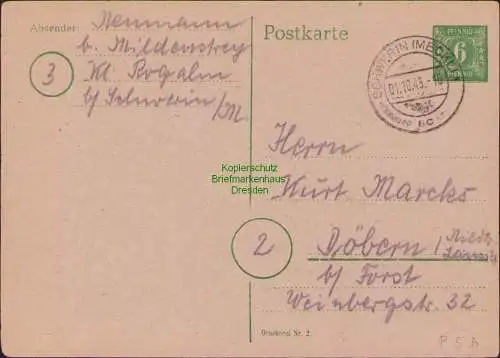 Absender: Neumann
b. Mildenstrey
Kl. Rogahn
b/ Schwerin/M.
3
Postkarte
6
PFENNIG
SCHWERIN (MECKL
01.10.45.
Kopierschutz
Briefmarkenhaus
Dresden
Herrn
Kurt Marcks
2
Döbern / Nieder
Lausitz
b/ Forst
Weinbergstr. 32
Drucksal Nr. 2.
P 5 b